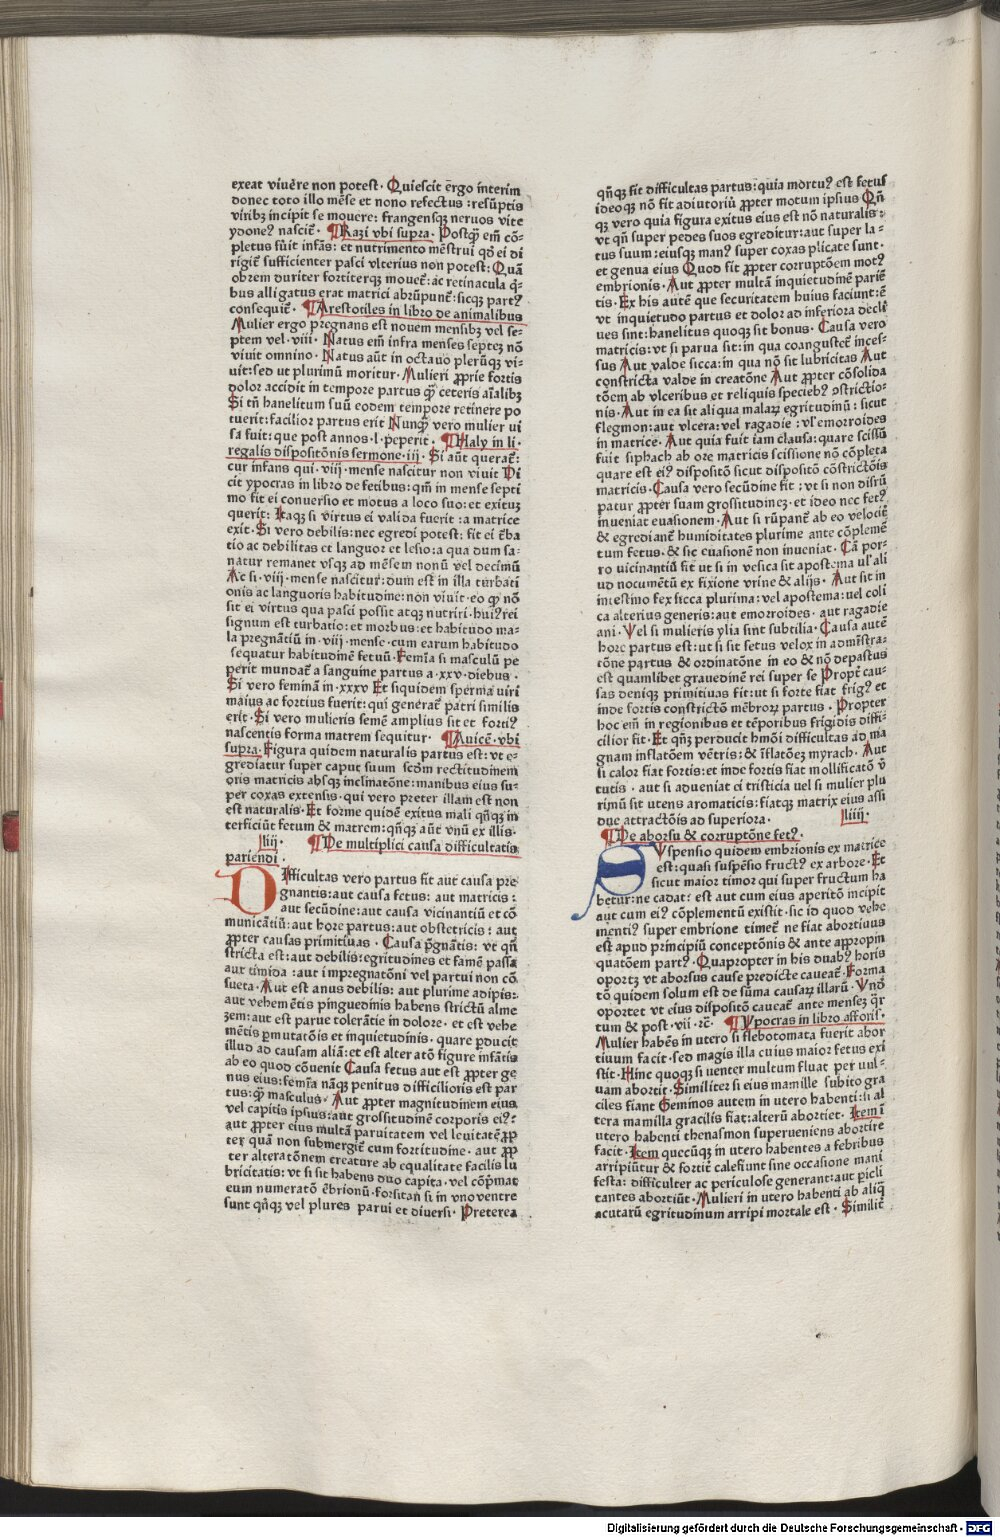 exeat viuẽre non potest· Quiescit ergo interim
donec toto illo mẽse et nono refectus :resũptis
viribꝫ incipit se mouere: frangensqꝫ neruos vite
ydoneꝰ nascit᷑· ¶Razi vbi supra· Postqꝫ em̃ cõ-
pletus fũit infãs: et nutrimento mẽstrui qđ ei di
rigit᷑ sufficienter pasci vlterius non potest: Quã
obrem duriter fortiterqꝫ mouet᷑: ac retinacula q̃-
bus alligatus erat matrici abrũpunt᷑: sicqꝫ partꝰ
consequit᷑· ¶Arestotiles in libro de animalibus
Mulier ergo pregnans est nouem mensibꝫ vel se-
ptem vel· viii· Natus em̃ infra menses septeꝫ nõ
viuit omnino· Natus aũt in octauo plerũqꝫ vi-
uit: sed ut plurimũ moritur· Mulieri ꝓprie fortis
dolor accidit in tempore partus qꝫ ceteris aĩalibꝫ
Si tñ hanelitum suũ eodem tempore retinere po
tuerit: facilior partus erit Nunqꝫ vero mulier ui
sa fuit: que post annos·l·peperit· ¶Haly in li·
regalis dispositõnis sermone·iii· Si aũt querat᷑:
cur infans qui· viii·mense nascitur non viuit Di
cit ypocras in libro de fetibus: qm̃ in mense septi
mo fit ei conuersio et motus a loco suo: et exituꝫ
querit: Itaqꝫ si virtus ei valida fuerit :a matrice
exit· Si vero debilis: nec egredi potest: fit ei ẽba
tio ac debilitas et languor et lesio: a qua dum sa-
natur remanet vsqꝫ ad mẽsem nonũ vel decimũ
Ac si·viii·mense nascitur: dum est in illa turbati
onis ac languoris habitudine: non viuit· eo qꝫ nõ
sit ei virtus qua pasci possit atqꝫ nutriri· huiꝰ rei
signum est turbatio: et morbus: et habitudo ma-
la pregnãtiũ in·viii·mense· cum earum habitudo
sequatur habitudinẽ fetuũ· Femĩa si masculũ pe
perit mundat᷑ a sanguine partus a·xxv·diebus·
Si vero feminã in·xxxv Et siquidem sperma uiri
maius ac fortius fuerit: qui generat᷑ patri similis
erit· Si vero mulieris semẽ amplius sit et fortiꝰ
nascentis forma matrem sequitur· ¶Auicẽ·vbi
supra· Figura quidem naturalis partus est: vt e-
grediatur super caput suum scdm rectitudinem
oris matricis absqꝫ inclinatõne: manibus eius su-
per coxas extensis· qui vero preter illam est non
est naturalis· Et forme quidẽ exitus mali qñqꝫ in
terficiũt fetum & matrem: qñqꝫ aũt vnũ ex illis·
liii· ¶De multiplici causa difficultatis
pariendi·
Difficultas vero partus fit aut causa pre
gnantis: aut causa fetus: aut matricis:
aut secũdine: aut causa vicinantiũ et cõ
municãtiũ: aut hore partus: aut obstetricis: aut
ꝓpter causas primitiuas· Causa p̃gnãtis: vt qñ
stricta est: aut debilis: egritudines et famẽ passa
aux timida :aut impregnatõni vel partui non cõ
sueta· Aut est anus debilis: aut plurime adipis:
aut vehemẽtis pinguedinis habens strictũ alme
zem: aut est parue tolerãtie in dolore· et est vehe
mẽtis ꝑmutatõis et inquietudinis· quare ꝑducit
illud ad causam aliã: et est alteratõ figure infãtis
ab eo quod cõuenit Causa fetus aut est ꝓpter ge
nus eius: femĩa nãqꝫ penitus difficilioris est par
tus: qꝫ masculus· Aut ꝓpter magnitudinem eius
vel capitis ipsius: aut grossitudinẽ corporis eiꝰ:
aut ꝓpter eius multã paruitatem vel leuitatẽ ꝓp
ter quã non submergit᷑ cum fortitudine· aut ꝓp
ter alteratõnem creature ab equalitate facilis lu
bricitatis: vt si sit habens duo capita· vel cõp̃mat
eum numeratõ ẽbrionũ· forsitan si in vno ventre
sunt qñqꝫ vel plures parui et diuersi· Preterea
qñqꝫ fit difficultas partus: quia mortuꝰ est fetus
ideoqꝫ nõ fit adiutoriũ ꝓpter motum ipsius Qñ
qꝫ vero quia figura exitus eius est nõ naturalis:
vt qñ super pedes suos egreditur: aut super la-
tus suum: eiusqꝫ manꝰ super coxas plicate sunt·
et genua eius Quod fit ꝓpter corruptõem motꝰ
embrionis· Aut ꝓpter multã inquietudinẽ pariẽ
tis· Ex his autẽ que securitatem huius faciunt: ẽ
vt inquietudo partus et dolor ad inferiora decli
ues sint: hanelitus quoqꝫ sit bonus· Causa vero
matricis: vt si parua sit: in qua coangustet᷑ inces-
sus Aut valde sicca: in qua nõ sit lubricitas Aut
constricta valde in creatõne Aut ꝓpter cõsolida
tõem ab vlceribus et reliquis speciebꝰ ↄstrictio-
nis· Aut in ea sit aliqua malaꝝ egritudinũ: sicut
flegmon: aut vlcera: vel ragadie: vl' emorroides
in matrice· Aut quia fuit iam clausa: quare scissũ
fuit siphach ab ore matricis scissione nõ cõpleta
quare est eiꝰ dispositõ sicut dispositõ cõstrictõis
matricis· Causa vero secũdine fit: vt si non disrũ
patur ꝓpter suam grossitudineꝫ· et ideo nec fetꝰ
inueniat euasionem· Aut si rũpant᷑ ab eo velocit᷑
& egrediant᷑ humiditates plurime ante cõplemẽ
tum fetus· & sic euasionẽ non inueniat· Cã por-
ro uicinantiũ fit ut si in vesica sit apostema ul' ali
ud nocumẽtũ ex fixione vrine & alijs· Aut sit in
intestino fex sicca plurima: vel apostema: uel coli
ca alterius generis: aut emorroides· aut ragadie
ani· Vel si mulieris ylia sint subtilia· Causa autẽ
hore partus est: ut si sit fetus velox in adm̃stra-
tõne partus & ordinatõne in eo & nõ depastus
est quamlibet grauedinẽ rei super se Propt᷑ cau-
sas denique primitiuas fit: ut si forte fiat frigꝰ et
inde fortis constrictõ mẽbroꝝ partus· Propter
hoc em̃ in regionibus et tẽporibus frigidis diffi-
cilior fit· Et qñqꝫ perducit hmõi difficultas ad ma
gnam inflatõem vẽtris: & iflatõeꝫ myrach· Aut
si calor fiat fortis: et inde fortis fiat mollificatõ v̾
tutis· aut si adueniat ei tristicia uel si mulier plu
rimũ sit utens aromaticis: fiatqꝫ matrix eius assi
due attractõis ad superiora· liiii·
¶De aborsu & corruptõne fetꝰ·
Suspensio quidem embrionis ex matrice
est: quasi suspẽsio fructꝰ ex arbore· Et
sicut maior timor qui super fructum ha
betur: ne cadat: est aut cum eius aperitõ incipit
aut cum eiꝰ cõplementũ existit· sic id quod vehe
mentiꝰ super embrione timet᷑ ne fiat abortiuus
est apud principiũ conceptõnis & ante appropin
quatõem partꝰ· Quapropter in his duabꝰ horis
oportꝫ vt aborsus cause predicte caueat᷑· Forma
tõ quidem solum est de sũma causaꝝ illarũ· Vñđ
oportet vt eius dispositõ caueat᷑ ante menseꝫ q̃r
tum & post·vii· rc̃· ¶Ypocras in libro afforis·
Mulier habẽs in utero si flebotomata fuerit abor
tiuum facit· sed magis illa cuius maior fetus exi
stit· Hinc quoqꝫ si uenter multum fluat per uul-
uam abortit· Similiter si eius mamille subito gra
ciles fiant Geminos autem in utero habenti: si al
tera mamilla gracilis fiat: alterũ abortiet· Item ĩ
utero habenti thenasmon superueniens abortire
facit· Item quecũqꝫ in utero habentes a febribus
arripiũtur & fortit᷑ calefiunt sine occasione mani
festa: difficulter ac periculose generant: aut ꝑicli
tantes abortiũt· Mulieri in utero habenti ab aliq̃
acutarũ egritudinum arripi mortale est· Similit᷑
Digitalisierung gefördert durch die Deutsche Forschungsgemeinschaft - DFG